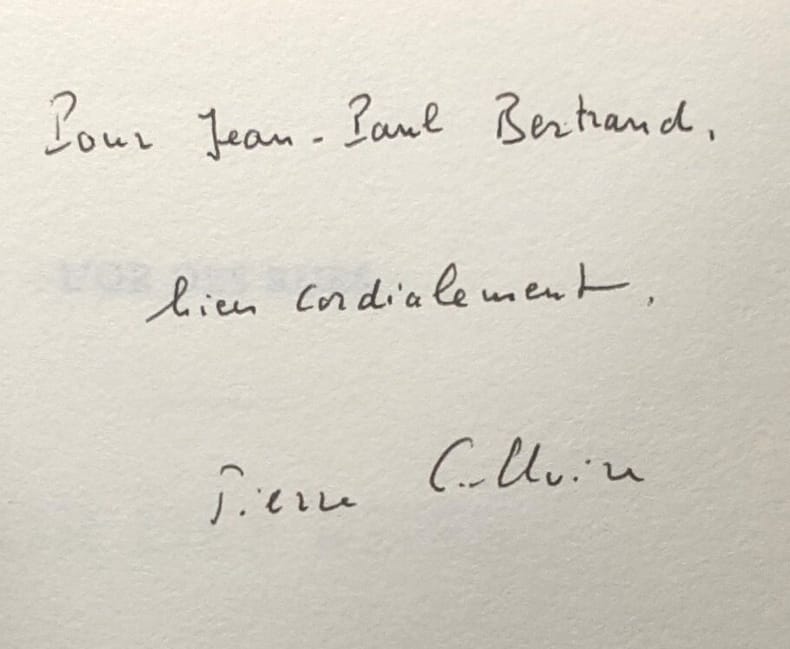 Pour Jean-Paul Bertrand,
bien cordialement,
Pierre